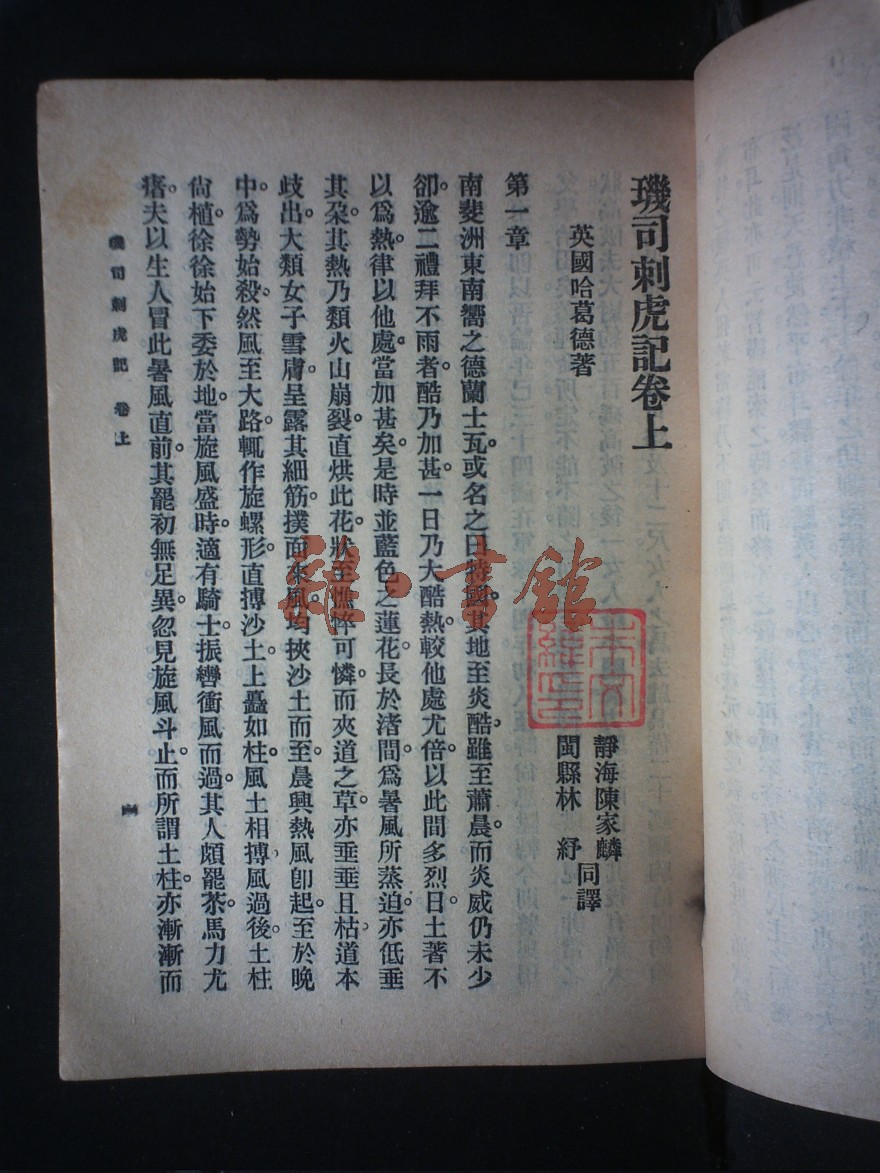 璣司刺虎記卷上
英國哈葛德著
靜海陳家麟
閩縣林 紓
同譯
第一章
南斐洲東南嚮之德蘭士瓦。或名之曰特國。其地至炎酷。雖至蕭晨。而炎威仍未少
卻。逾二禮拜不雨者。酷乃加甚。一日乃大酷熱。較他處尤倍。以此間多烈日。土著不
以爲熱。律以他處。當加甚矣。是時並藍色之蓮花。長於渚間。爲暑風所蒸迫。亦低垂
其朶。其熱乃類火山崩裂。直烘此花。狀至憔悴可憐。而夾道之草。亦垂垂且枯。道本
歧出。大類女子雪膚。呈露其細筋。撲面來風。均挾沙土而至。晨興熱風卽起。至於晚
中。爲勢始殺。然風至大路。輒作旋螺形。直搏沙土。上矗如柱。風土相搏。風過後。土柱
尙植。徐徐始下委於地。當旋風盛時。適有騎士。振轡衝風而過。其人頗罷茶。馬力尤
瘏。夫以生人冒此暑風直前。其罷初無足異。忽見旋風斗止。而所謂土柱。亦漸漸而
璣司刺虎記 卷上
一
雜·書館